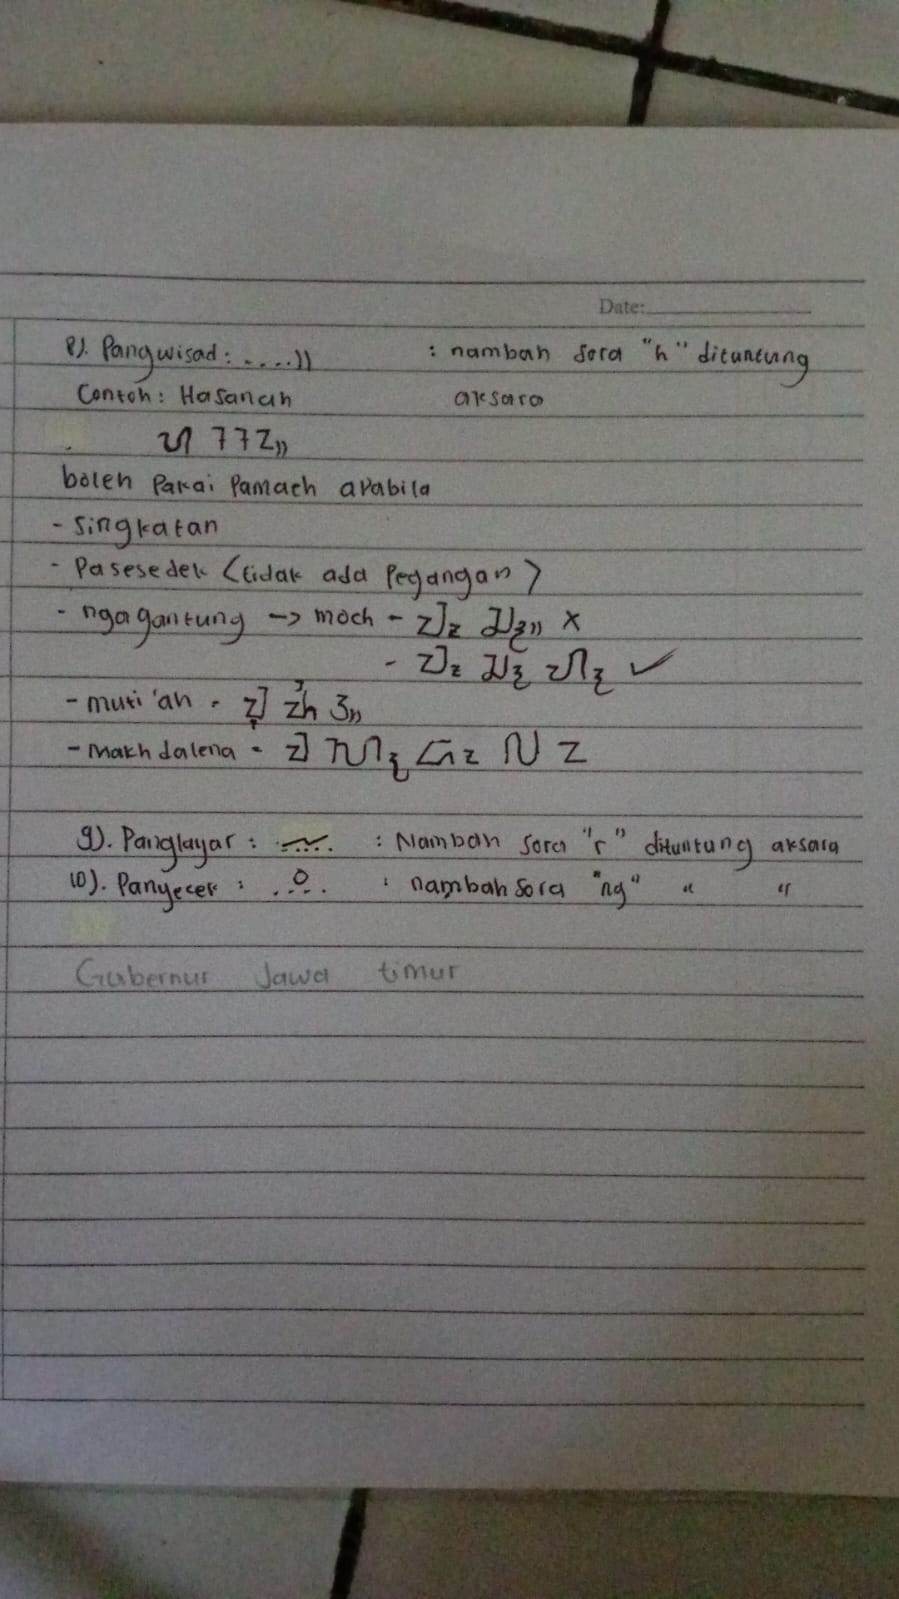 Date:
8). Pangwisad : .....)) : nambah sora "h" dituntung
Contoh : Hasanah aksara
ᮠ ᮞ ᮔ ᮂ
boleh Pakai Pamaeh apabila
- Singkatan
- Pasesedek (tidak ada Pegangan)
- ngagantung -> moch - x
- ✓
- muti'ah -
- Makhdalena -
9). Panglayar : ..... : Nambah sora "r" dituntung aksara
10). Panyecek : ..... : nambah sora "ng" " "
Gubernur Jawa timur